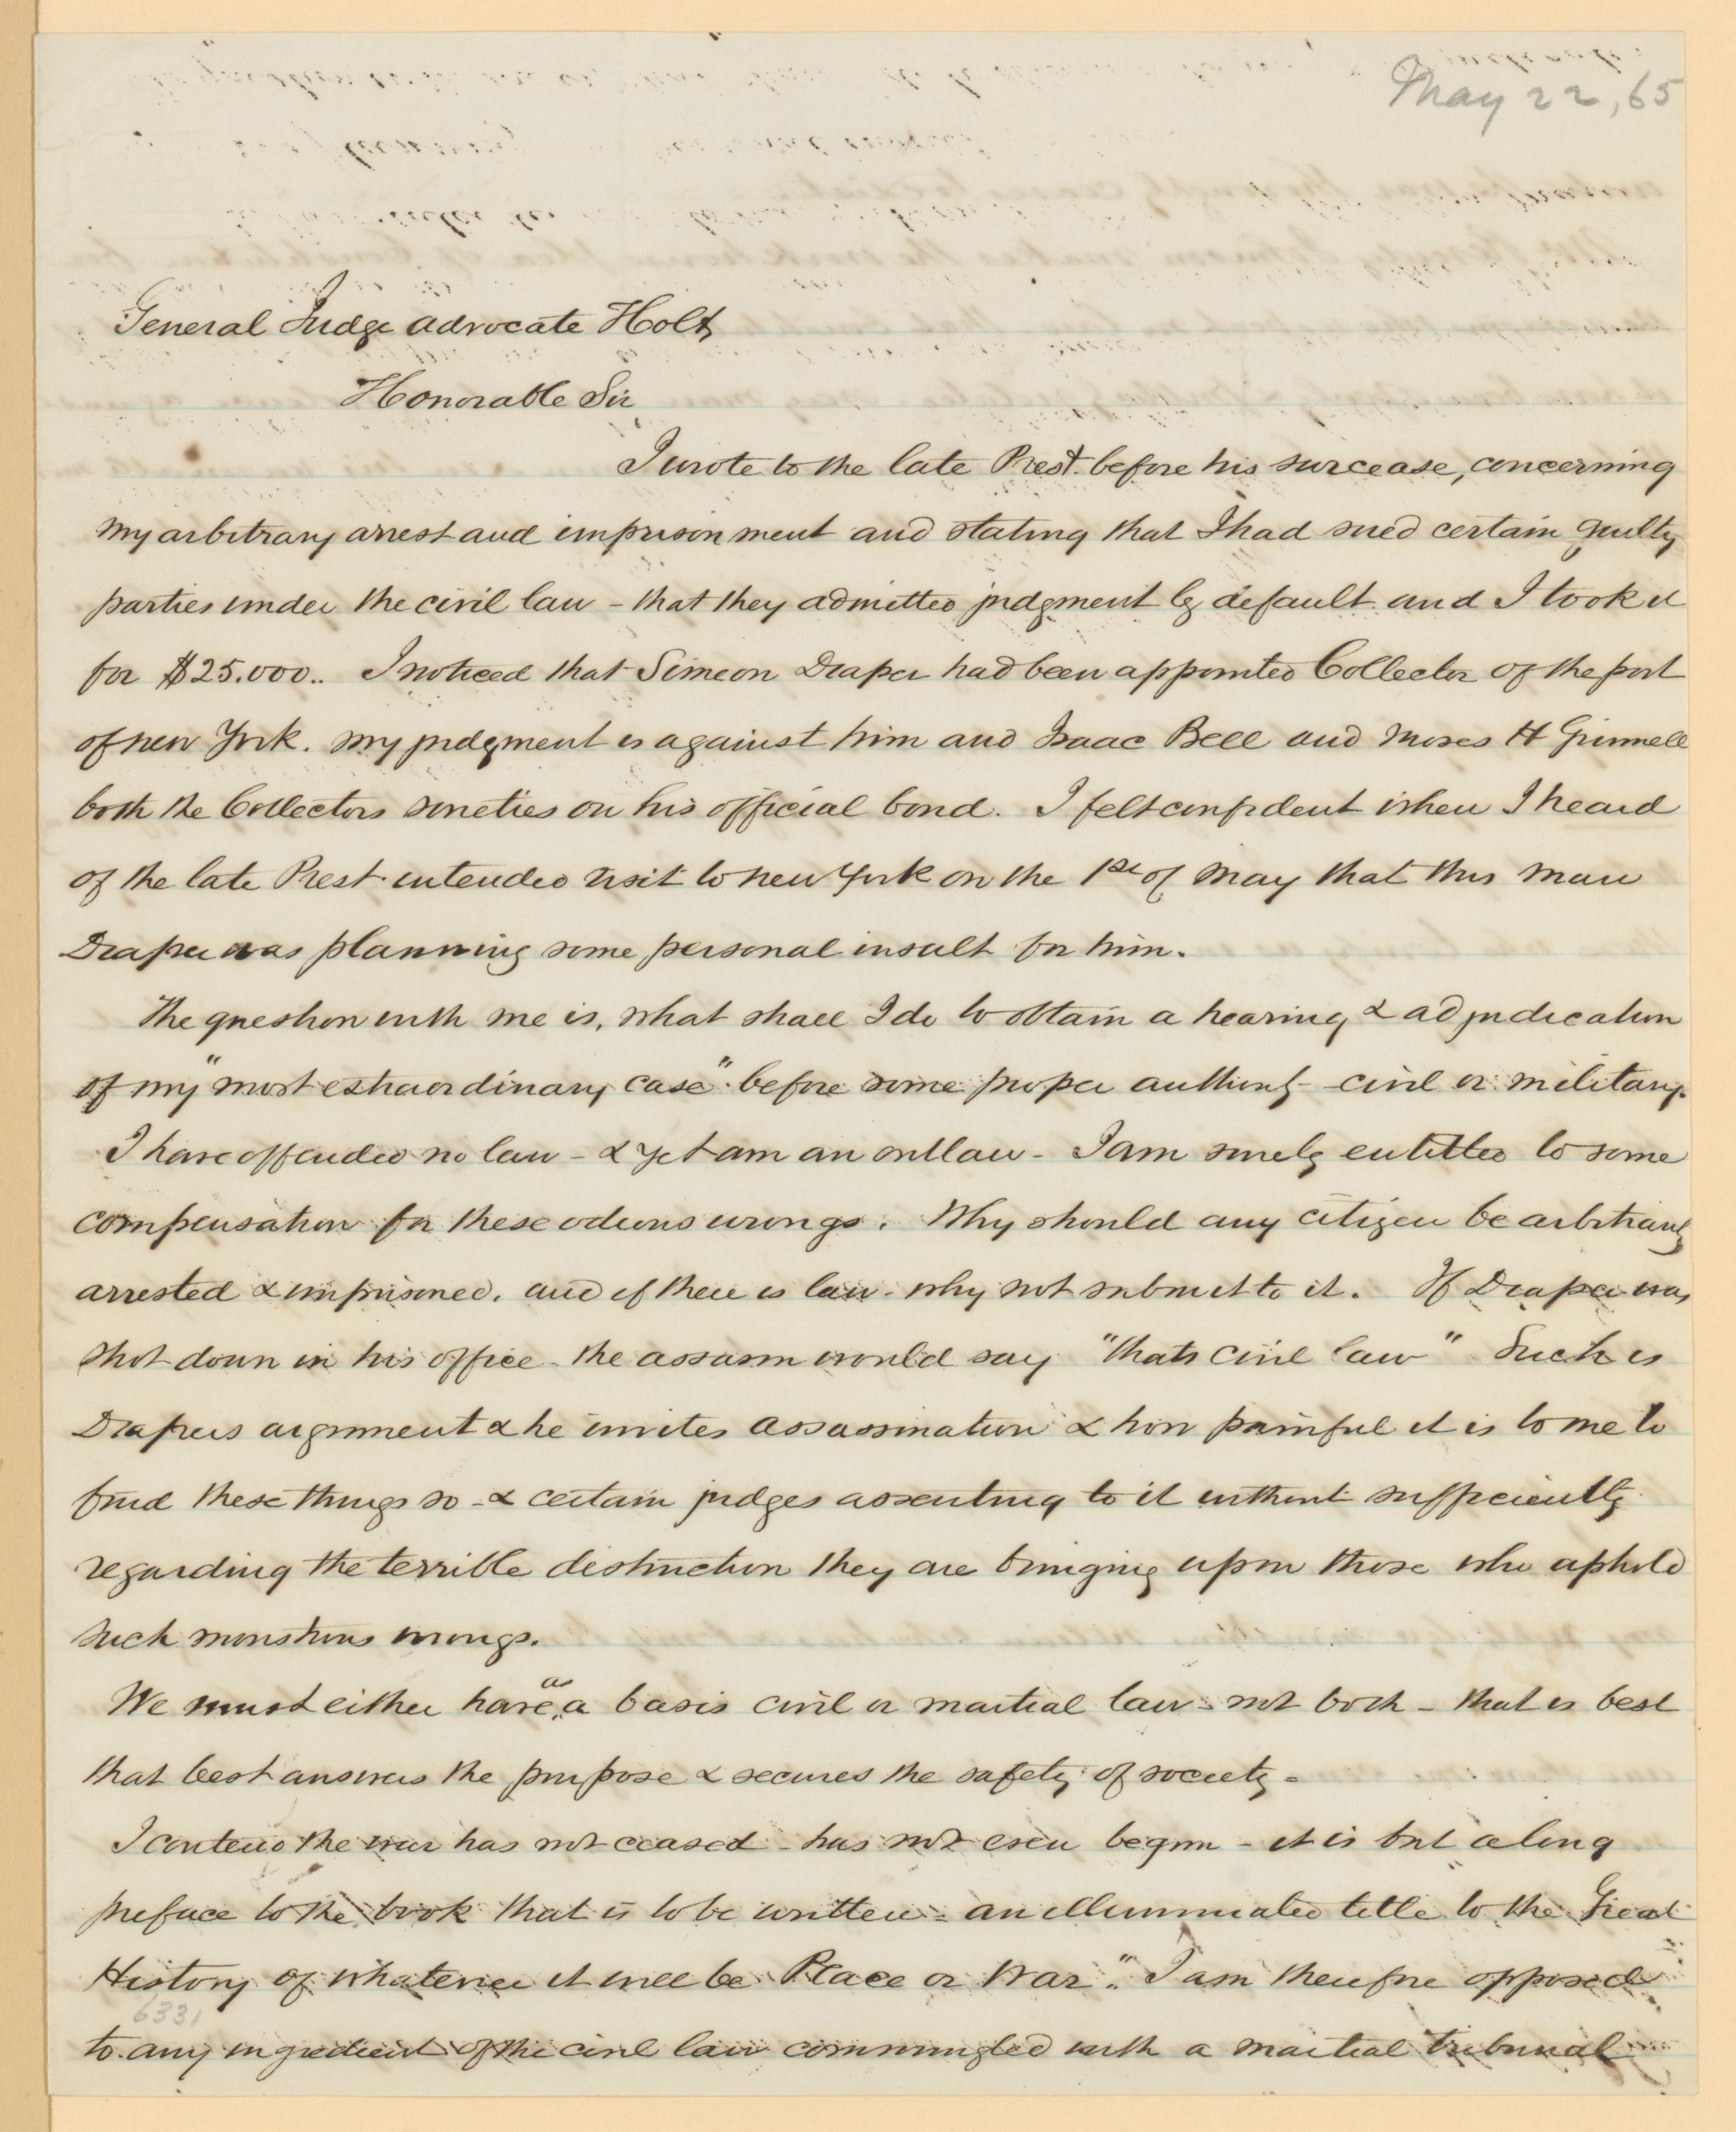 May 22, 65
General Judge Advocate Holt
Honorable Sir
I wrote to the late Prest. before his surcease, concerning
my arbitrary arrest and imprisonment and stating that I had sued certain guilty
parties under the civil law - that they admitted judgment by default and I took it
for $25.000.. I noticed that Simeon Draper had been appointed Collector of the port
of new York. my judgment is against him and Isaac Bell and Moses H Grinnell
both the Collectors sureties on his official bond. I felt confident when I heard
of the late Prest. intended visit to new York on the 1st of May that this man
Draper was planning some personal insult for him.
The question with me is, what shall I do to obtain a hearing & adjudication
of my "most extraordinary case" before some proper authority - civil or military.
I have offended no law - & yet am an outlaw - I am surely entitled to some
compensation for these odious wrongs. Why should any citizen be arbitrarily
arrested & imprisoned. and if there is law - why not submit to it. If Draper was
shot down in his office - the assassin would say "thats civil law" Such is
Drapers argument & he invites assassination & how painful it is to me to
find these things so - & certain judges assenting to it without sufficiently
regarding the terrible destruction they are bringing upon those who uphold
such monstrous wrongs.
We must either have as a basis civil or martial law - not both - that is best
that best answers the purpose & secures the safety of society -
I contend the war has not ceased - has not even begun - it is but a long
preface to the book that is to be written - an illuminated title to the Great
History of whatever it will be Peace or War". I am therefore opposed
6331
to any ingredient of the civil law commingled with a martial tribunal